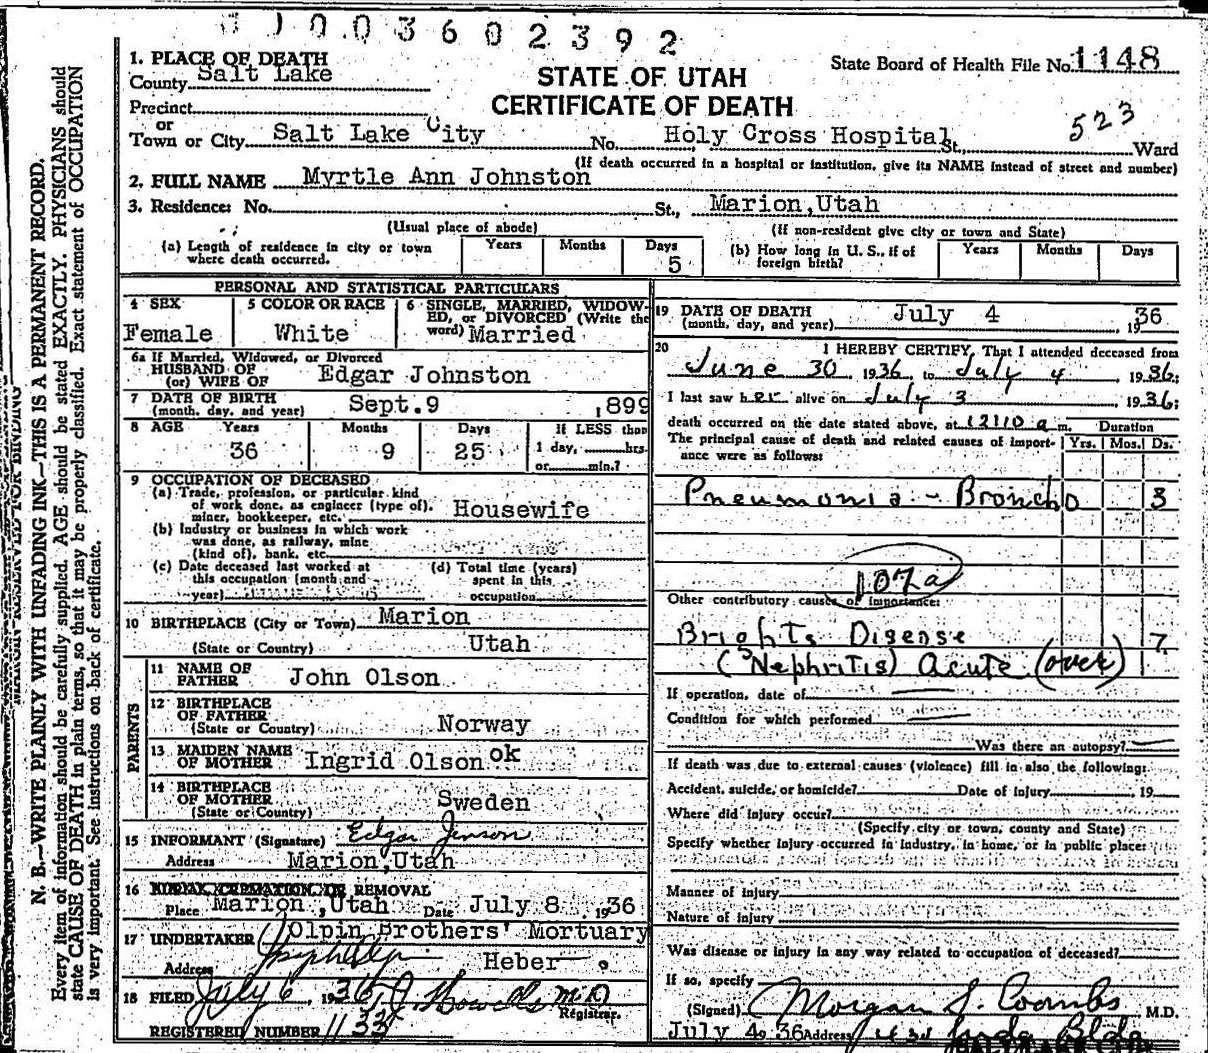 0 0 3 6 0 2 3 9 2
1. PLACE OF DEATH
County Salt Lake
STATE OF UTAH
CERTIFICATE OF DEATH
State Board of Health File No. 1148
Precinct
or
Town or City Salt Lake City No. Holy Cross Hospital St., 523 Ward
(If death occurred in a hospital or institution, give its NAME instead of street and number)
2. FULL NAME Myrtle Ann Johnston
3. Residence: No. St., Marion, Utah
(Usual place of abode) (If non-resident give city or town and State)
(a) Length of residence in city or town where death occurred. Years Months Days 5
(b) How long in U. S., if of foreign birth? Years Months Days
PERSONAL AND STATISTICAL PARTICULARS
4 SEX Female
5 COLOR OR RACE White
6 SINGLE, MARRIED, WIDOWED, or DIVORCED (Write the word) Married
6a If Married, Widowed, or Divorced
HUSBAND OF
(or) WIFE OF Edgar Johnston
7 DATE OF BIRTH
(month, day, and year) Sept. 9 1899
8 AGE Years Months Days If LESS than
36 9 25 1 day, hrs.
or min.?
9 OCCUPATION OF DECEASED
(a) Trade, profession, or particular kind
of work done, as engineer (type of),
miner, bookkeeper, etc. Housewife
(b) Industry or business in which work
was done, as railway, mine
(kind of), bank, etc.
(c) Date deceased last worked at
this occupation (month and
year)
(d) Total time (years)
spent in this
occupation
10 BIRTHPLACE (City or Town) Marion
(State or Country) Utah
PARENTS
11 NAME OF
FATHER John Olson
12 BIRTHPLACE
OF FATHER
(State or Country) Norway
13 MAIDEN NAME
OF MOTHER Ingrid Olson ok
14 BIRTHPLACE
OF MOTHER
(State or Country) Sweden
15 INFORMANT (Signature) Edgar
Address Marion, Utah
16 BURIAL, CREMATION, OR REMOVAL
Place Marion, Utah Date July 8 1936
17 UNDERTAKER Olpin Brothers' Mortuary
Address Heber
18 FILED July 6, 1936 Howells M D
Registrar.
REGISTERED NUMBER 1133
19 DATE OF DEATH
(month, day, and year) July 4, 1936
20 I HEREBY CERTIFY, That I attended deceased from
June 30, 1936, to July 4 1936;
I last saw her alive on July 3 1936;
death occurred on the date stated above, at 12:10 a m. Duration
The principal cause of death and related causes of importance were as follows: Yrs. Mos. Ds.
Pneumonia - Broncho 3
107a
Other contributory causes of importance:
Brights Disease 7
(Nephritis) Acute (over)
If operation, date of
Condition for which performed
Was there an autopsy?
If death was due to external causes (violence) fill in also the following:
Accident, suicide, or homicide? Date of injury 19
Where did injury occur?
(Specify city or town, county and State)
Specify whether injury occurred in industry, in home, or in public place:
Manner of injury
Nature of injury
Was disease or injury in any way related to occupation of deceased?
If so, specify
(Signed) Morgan S. Coombs M.D.
July 4, 36 Address Bldg
MARGIN RESERVED FOR BINDING
N. B.—WRITE PLAINLY WITH UNFADING INK—THIS IS A PERMANENT RECORD.
Every item of information should be carefully supplied. AGE should be stated EXACTLY. PHYSICIANS should
state CAUSE OF DEATH in plain terms, so that it may be properly classified. Exact statement of OCCUPATION
is very important. See instructions on back of certificate.